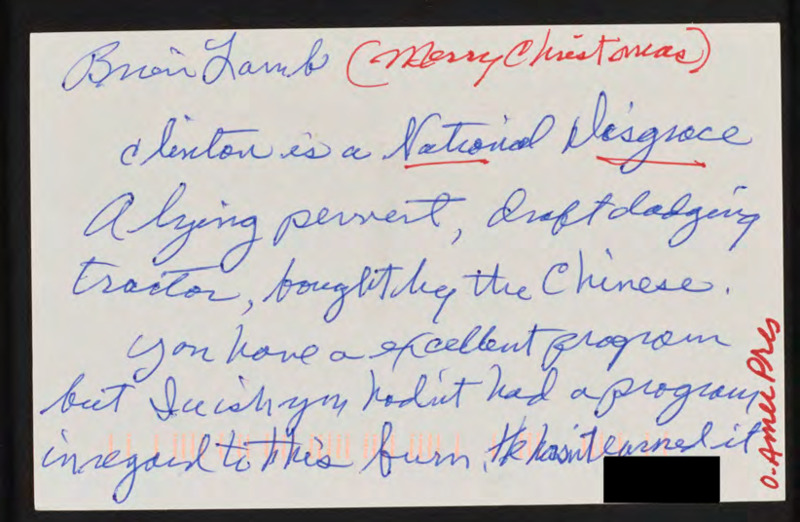 Brian Lamb (Merry Christmas)
Clinton is a National Disgrace
A lying pervert, draft dodging
traitor, bought by the Chinese.
You have a excellent program
but I wish you hadn't had a program
in regard to this bum, He hasn't earned it
O. Amer Pres